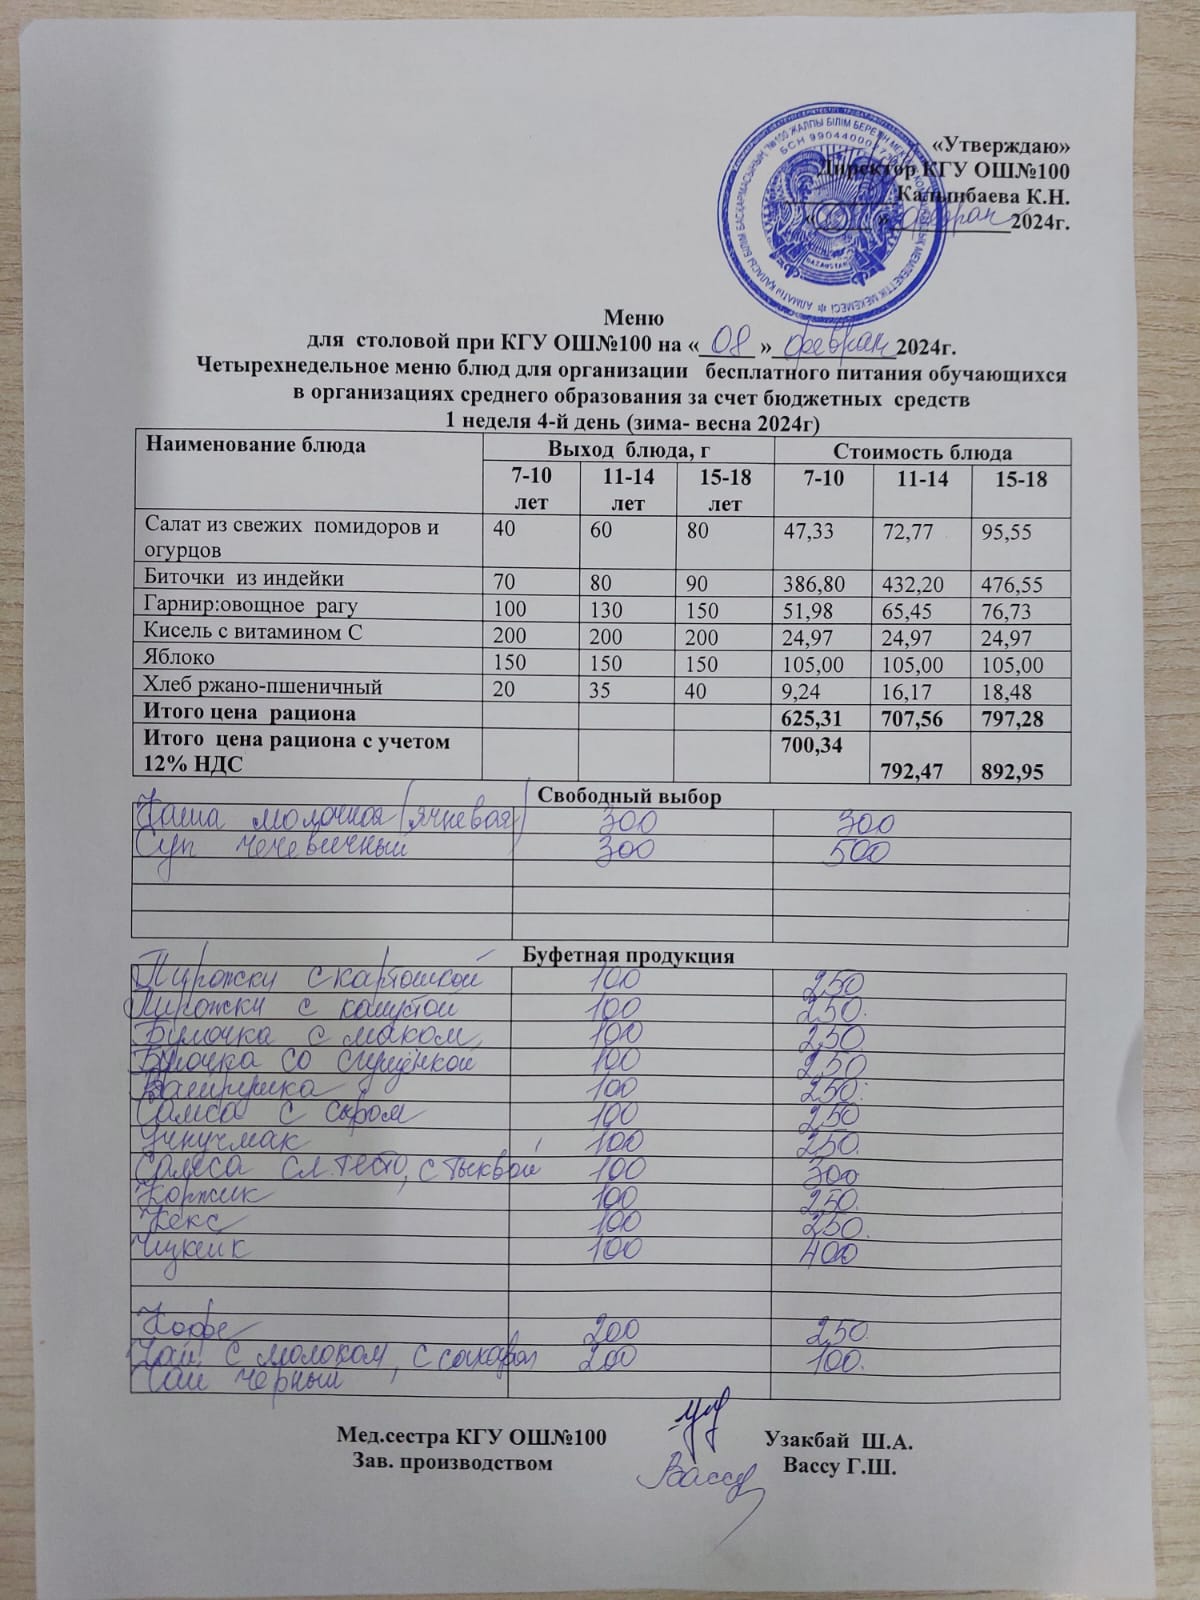 «Утверждаю»
Директор КГУ ОШ№100
Калынбаева К.Н.
« » феврал 2024г.
Меню
для столовой при КГУ ОШ№100 на « 08 » феврал 2024г.
Четырехнедельное меню блюд для организации бесплатного питания обучающихся
в организациях среднего образования за счет бюджетных средств
1 неделя 4-й день (зима- весна 2024г)
Наименование блюда Выход блюда, г Стоимость блюда
7-10 лет 11-14 лет 15-18 лет 7-10 11-14 15-18
Салат из свежих помидоров и
огурцов 40 60 80 47,33 72,77 95,55
Биточки из индейки 70 80 90 386,80 432,20 476,55
Гарнир:овощное рагу 100 130 150 51,98 65,45 76,73
Кисель с витамином С 200 200 200 24,97 24,97 24,97
Яблоко 150 150 150 105,00 105,00 105,00
Хлеб ржано-пшеничный 20 35 40 9,24 16,17 18,48
Итого цена рациона 625,31 707,56 797,28
Итого цена рациона с учетом
12% НДС 700,34 792,47 892,95
Свободный выбор
Каша молочная (ячневая) 300 300
Суп чечевичный 300 500
Буфетная продукция
Пирожки с картошкой 100 250
Пирожки с капустой 100 250.
Булочка с маком 100 250
Булочка со сгущёнкой 100 250
Ватрушка 100 250.
Самса с сыром 100 250
Учпучмак 100 250.
Самса сл. тесто, с тыквой 100 300
Коржик 100 250.
Кекс 100 250.
Чизкейк 100 400
Кофе 200 250.
Чай с молоком, с сахаром 200 100.
Чай черный
Мед.сестра КГУ ОШ№100 Узакбай Ш.А.
Зав. производством Вассу Вассу Г.Ш.